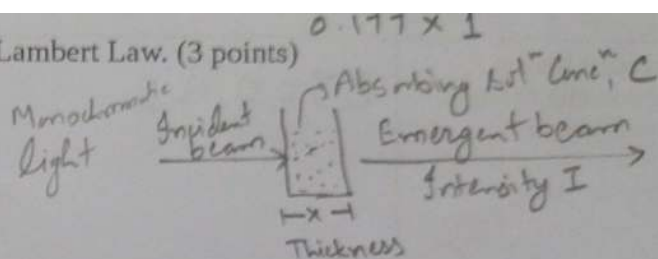 0.177 x 1
Lambert Law. (3 points)
Absorbing solⁿ Concⁿ, C
Monochromatic
light
Incident
beam
Emergent beam
Intensity I
x
Thickness